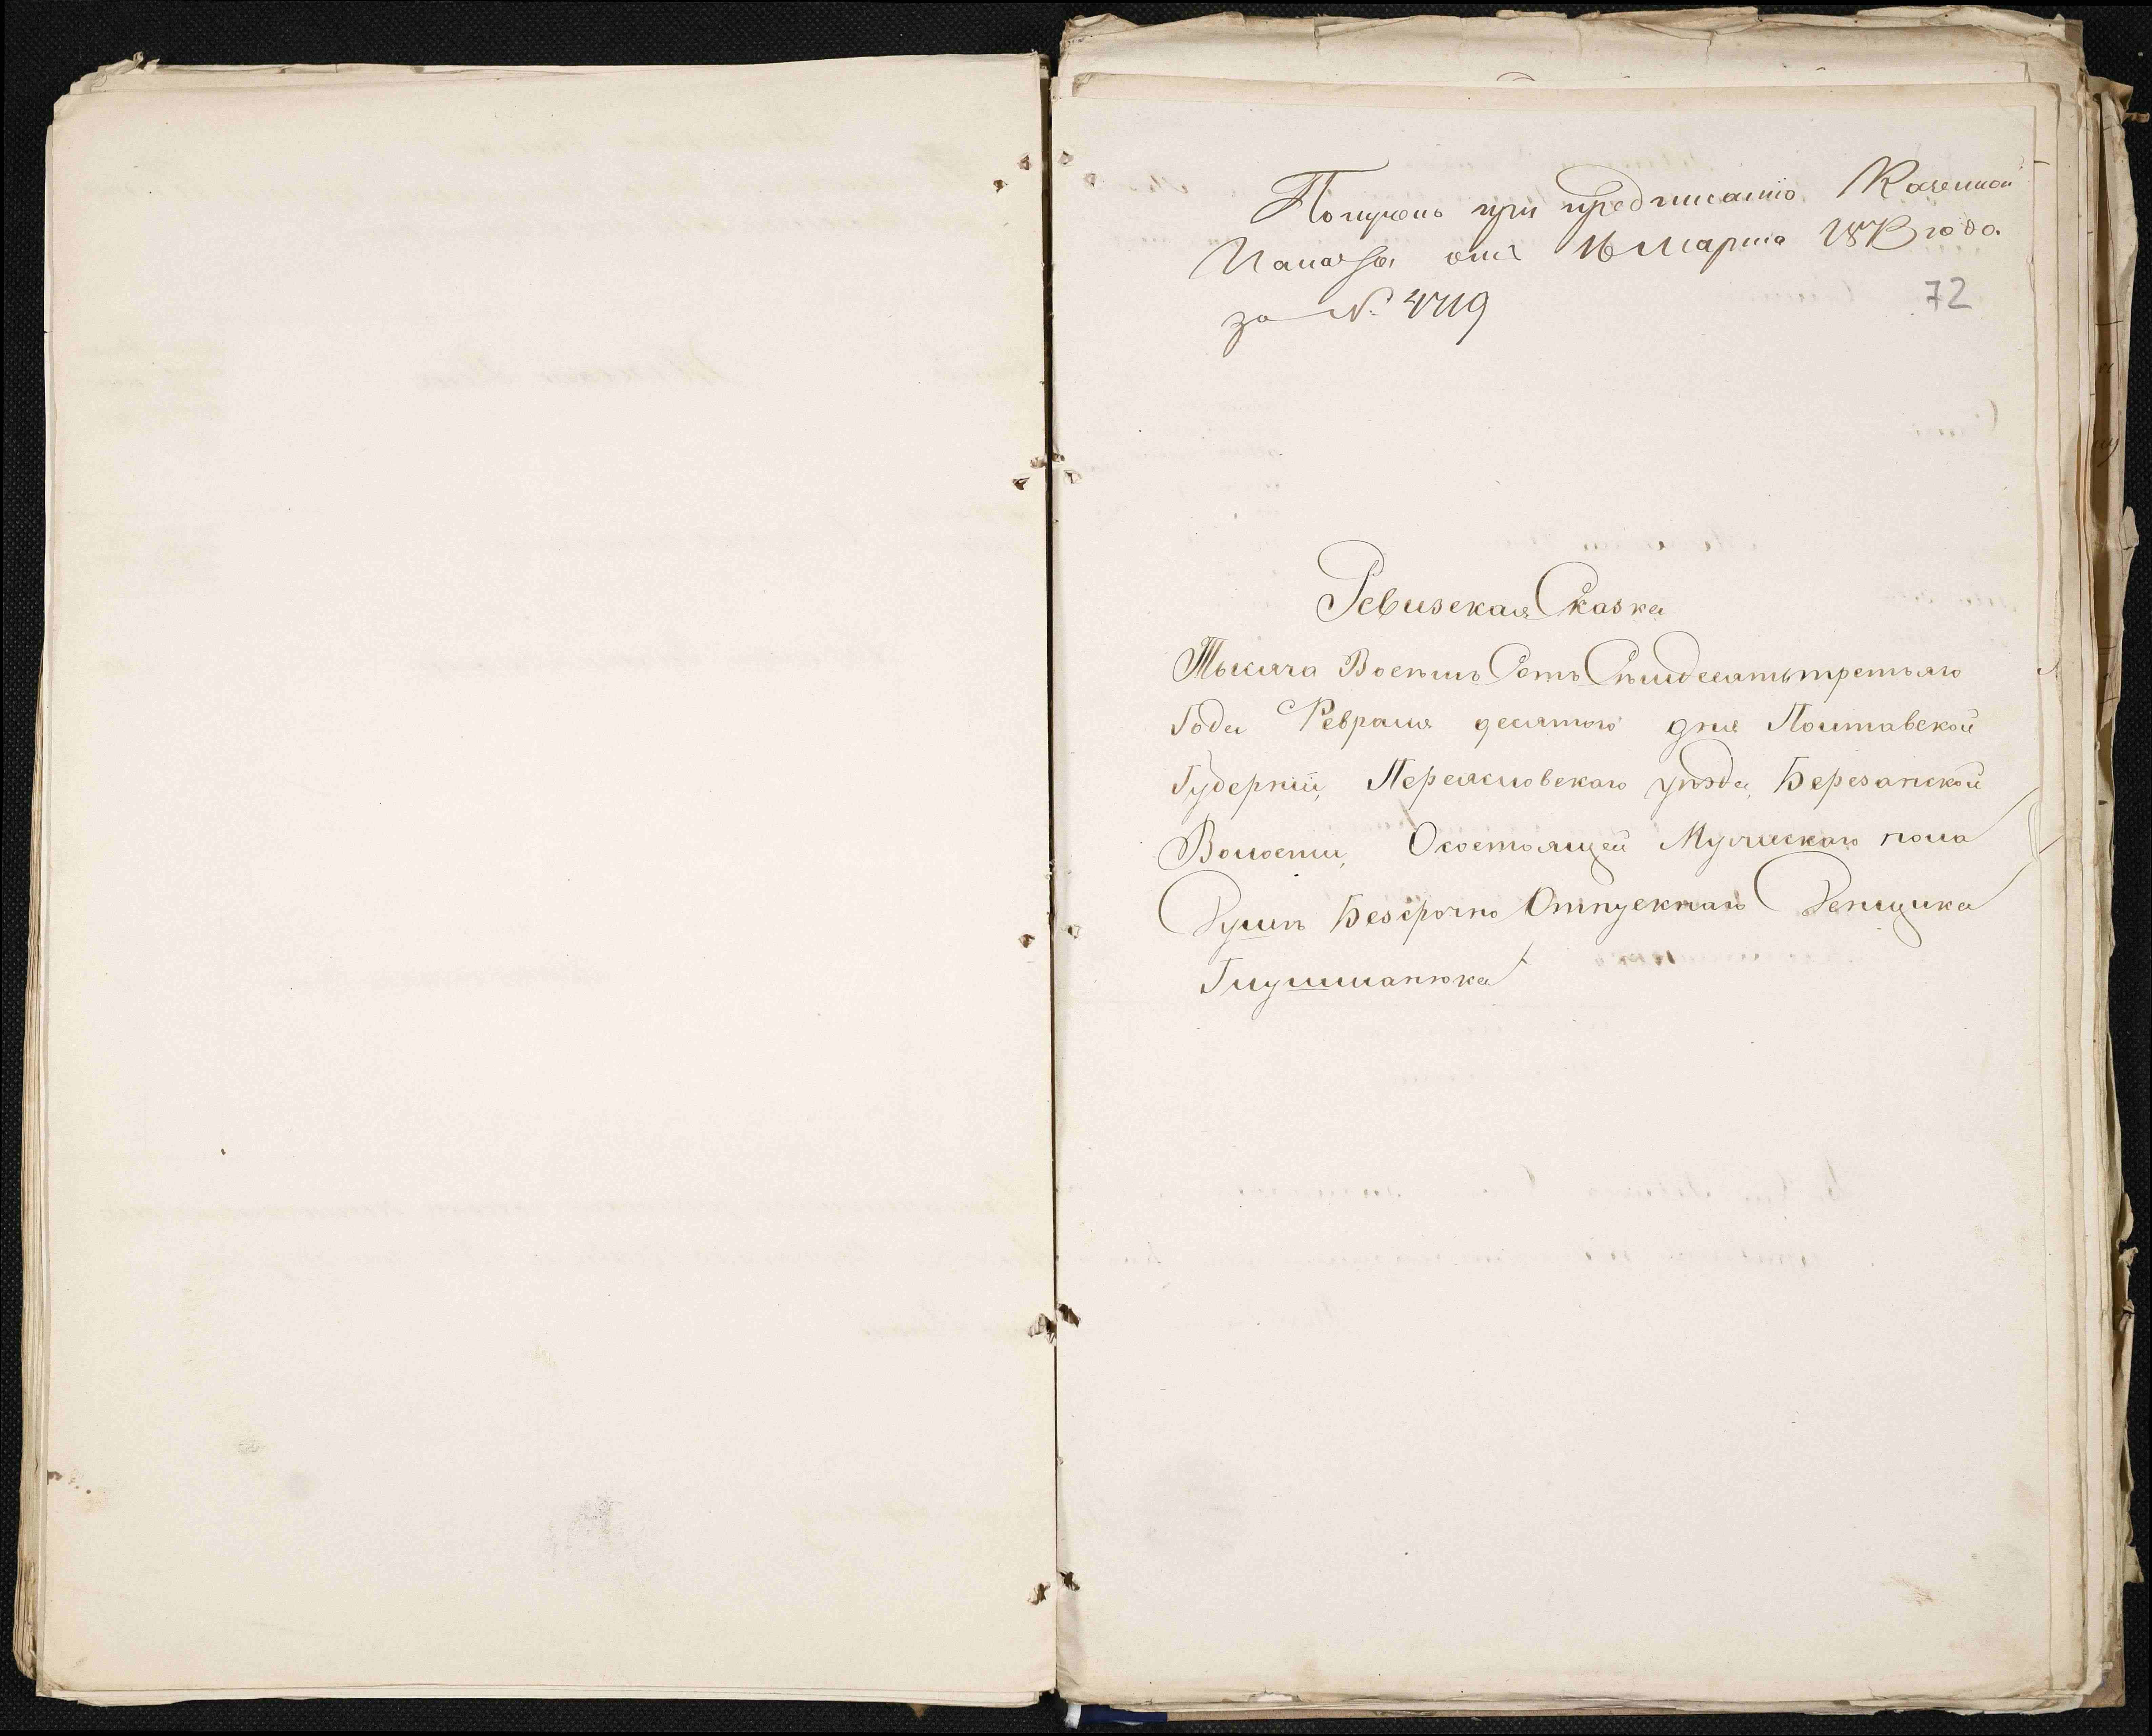 Получено при предписанію Казенной
Палаты отъ 16 Марта 1873 года
за № 4719
72
Ревизская Сказка
Тысяча Восемь Сотъ Семдесятьтретьяго
Года Февраля десятого дня Полтавской
Губерніи, Переясловскаго уѣзда, Березанской
Волости, Осостоящей Мужескаго пола
Душѣ Безсрочно Отпускнаго Денщика